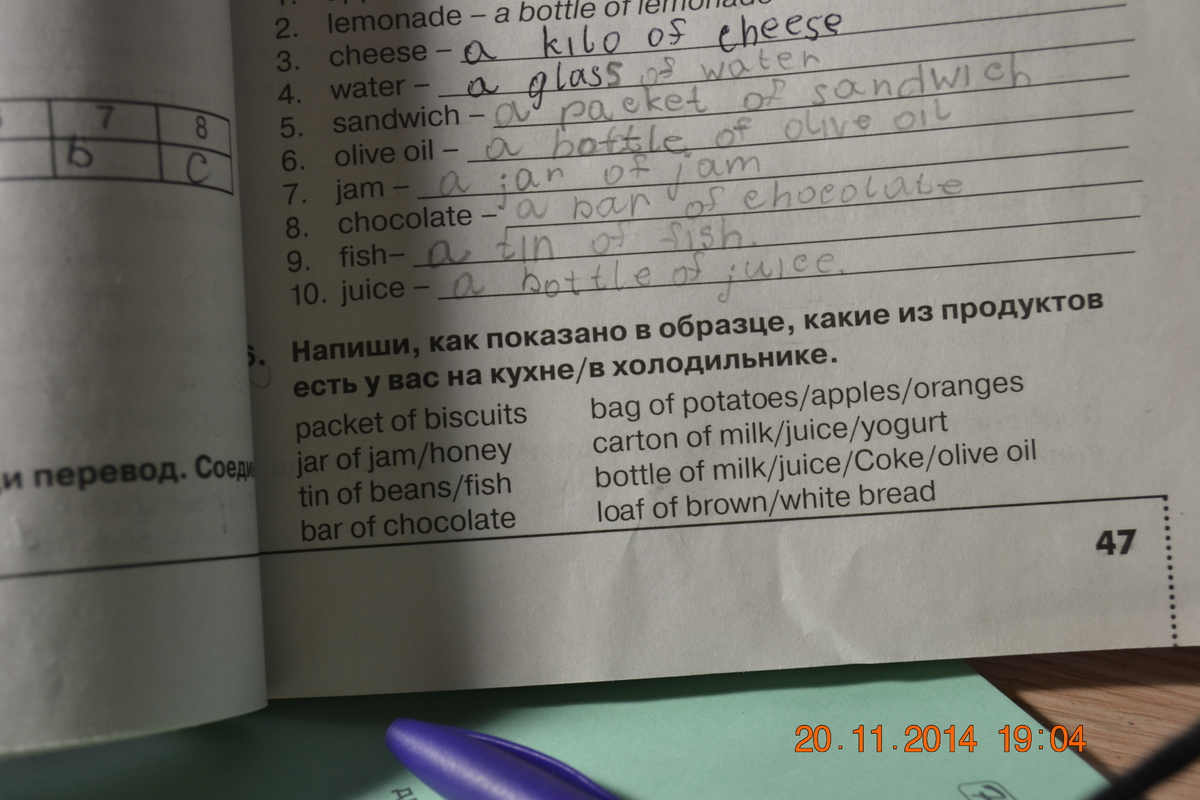 2. lemonade – a bottle of lemonade
3. cheese – a kilo of cheese
4. water – a glass of water
5. sandwich – a packet of sandwich
6. olive oil – a bottle of olive oil
7. jam – a jar of jam
8. chocolate – a bar of chocolate
9. fish– a tin of fish.
10. juice – a bottle of juice.
7 8
b c
Напиши, как показано в образце, какие из продуктов
есть у вас на кухне/в холодильнике.
packet of biscuits
jar of jam/honey
tin of beans/fish
bar of chocolate
bag of potatoes/apples/oranges
carton of milk/juice/yogurt
bottle of milk/juice/Coke/olive oil
loaf of brown/white bread
и перевод. Соеди
47
20.11.2014 19:04